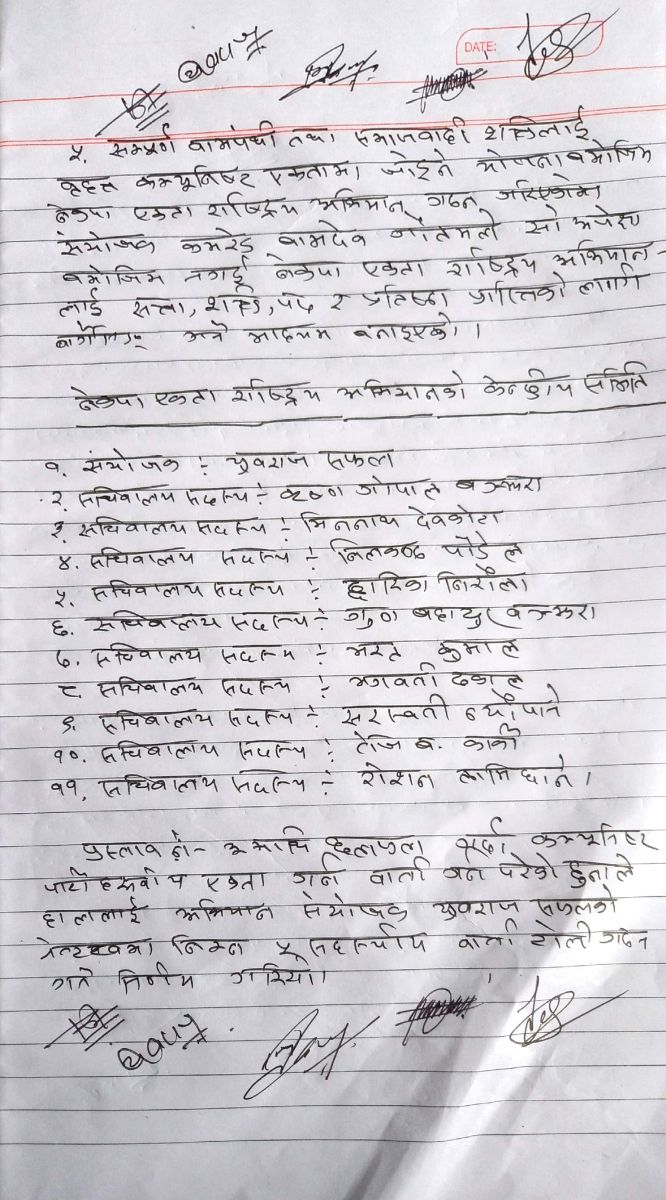 DATE:
५. सम्पूर्ण वामपंथी तथा समाजवादी शक्तिलाई
बृहत्त कम्युनिष्ट एकतामा जोड्ने योजना बमोजिम
नेकपा एकता राष्ट्रिय अभियान गठन गरिएकोमा
संयोजक कमरेड बामदेव गौतमले सो अपेक्षा
बमोजिम नगई नेकपा एकता राष्ट्रिय अभियान-
लाई सत्ता, शक्ति, पद र प्रतिष्ठा प्राप्तिको लागि
बार्गेनिङ्ग गर्ने माध्यम बनाइएको ।
नेकपा एकता राष्ट्रिय अभियानको केन्द्रीय समिति
१. संयोजक :- युवराज सफल
२. सचिवालय सदस्य :- कृष्ण गोपाल बञ्जरा
३. सचिवालय सदस्य :- भिमनाथ देवकोटा
४. सचिवालय सदस्य :- निलकण्ठ पौडेल
५. सचिवालय सदस्य :- द्वारिका निरौला
६. सचिवालय सदस्य :- गुण बहादुर बञ्जरा
७. सचिवालय सदस्य :- भरत कुमाल
८. सचिवालय सदस्य :- भगवती ढकाल
९. सचिवालय सदस्य :- सरस्वती न्यौपाने
१०. सचिवालय सदस्य :- तेज ब. कार्की
११. सचिवालय सदस्य :- रोशन लामिछाने ।
प्रस्ताव नं- ३ माथि छलफल गर्दा कम्युनिष्ट
पार्टी हरूबीच एकता गर्न वार्ता गर्न परेको हुनाले
हाललाई अभियान संयोजक युवराज सफलको
नेतृत्वमा निम्न ५ सदस्यीय वार्ता टोली गठन
गर्ने निर्णय गरियो ।